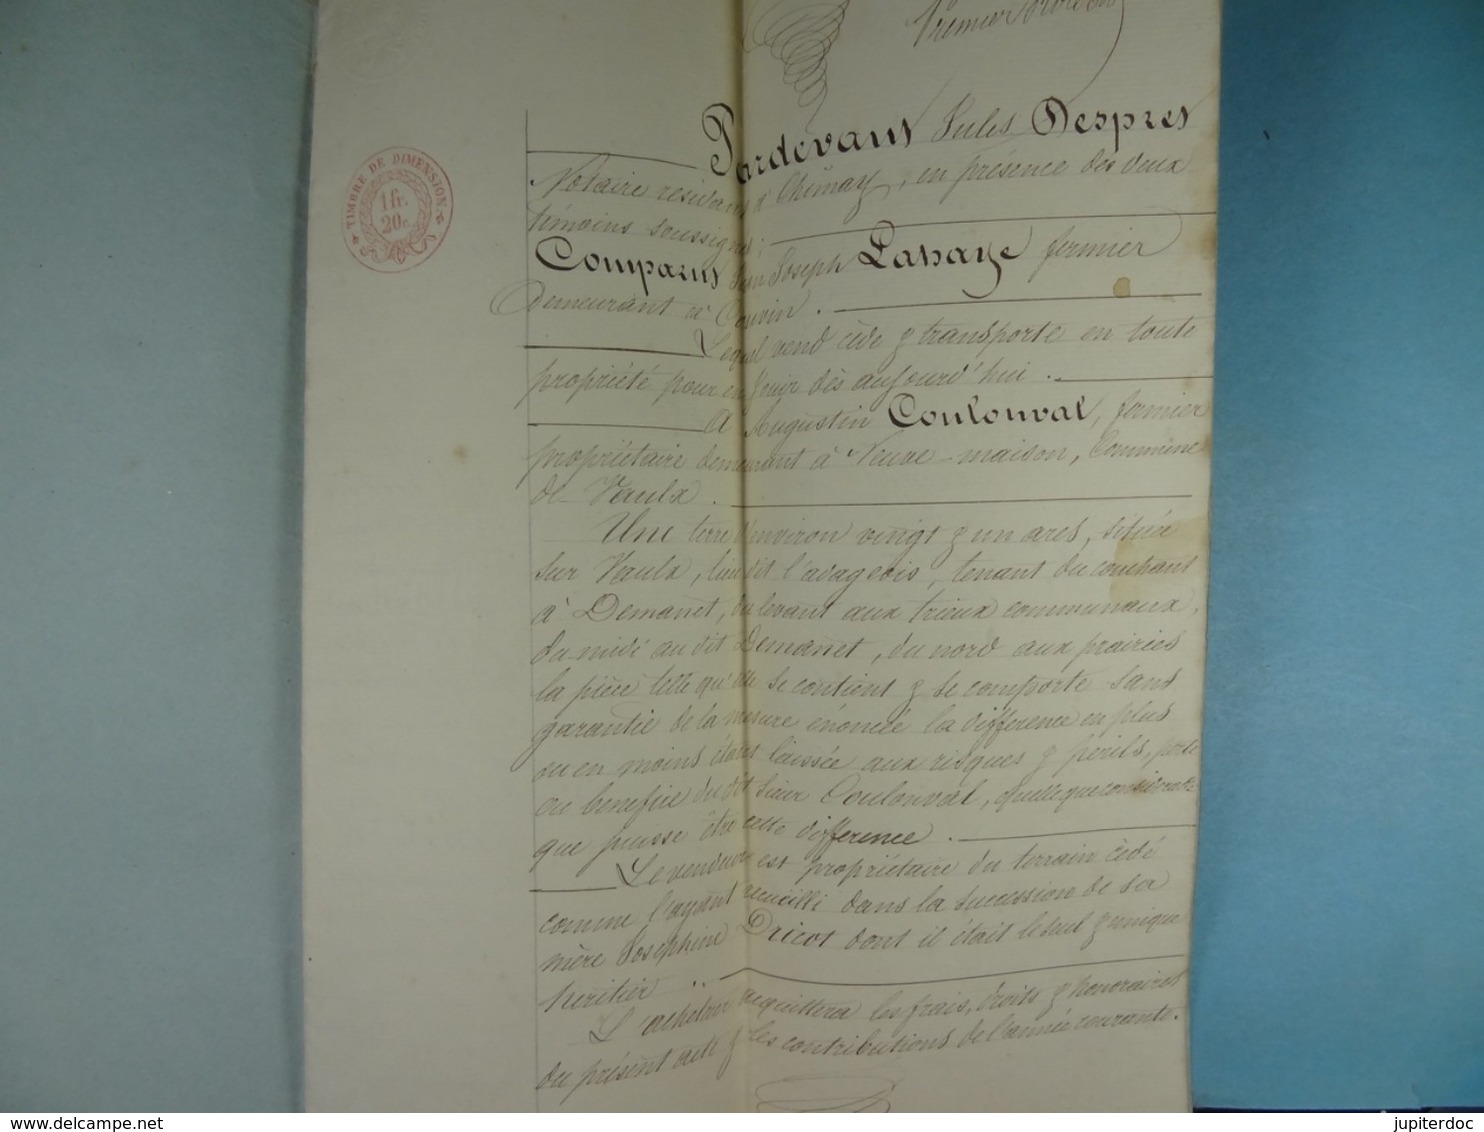 Premier
Pardevant Jules Despret
TIMBRE DE DIMENSION
1 fr.
20 c.
Notaire résidant à Chimay, en présence des deux
témoins soussignés:
Comparut Jean Joseph Lahaye fermier
demeurant à Couvin.
Lequel vend cède & transporte en toute
propriété pour en jouir dès aujourd'hui.
A Augustin Coulonval, fermier
propriétaire demeurant à Neuve-maison, Commune
de Vaulx.
Une terre d'environ vingt & un ares, située
sur Vaulx, lieu dit l'avageois, tenant du couchant
à Demanet, du levant aux trieux communaux,
du midi au dit Demanet, du nord aux prairies
la pièce telle qu'elle se contient & se comporte sans
garantie de la mesure énoncée la différence en plus
ou en moins étant laissée aux risques & périls, perte
ou bénéfice du dit Sieur Coulonval, quelle que considérable
que puisse être cette différence.
Le vendeur est propriétaire du terrain cédé
comme l'ayant recueilli dans la succession de sa
mère Joséphine Dricot dont il était le seul & unique
héritier
L'acheteur acquittera les frais, droits & honoraires
du présent acte & les contributions de l'année courante.
www.delcampe.net
jupiterdoc